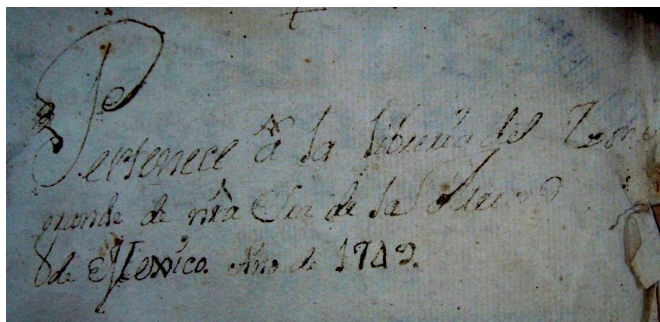 Pertenece â la libreria del Conv.
grande de nrã Sra de la Merced
de Mexico. Año de 1749.